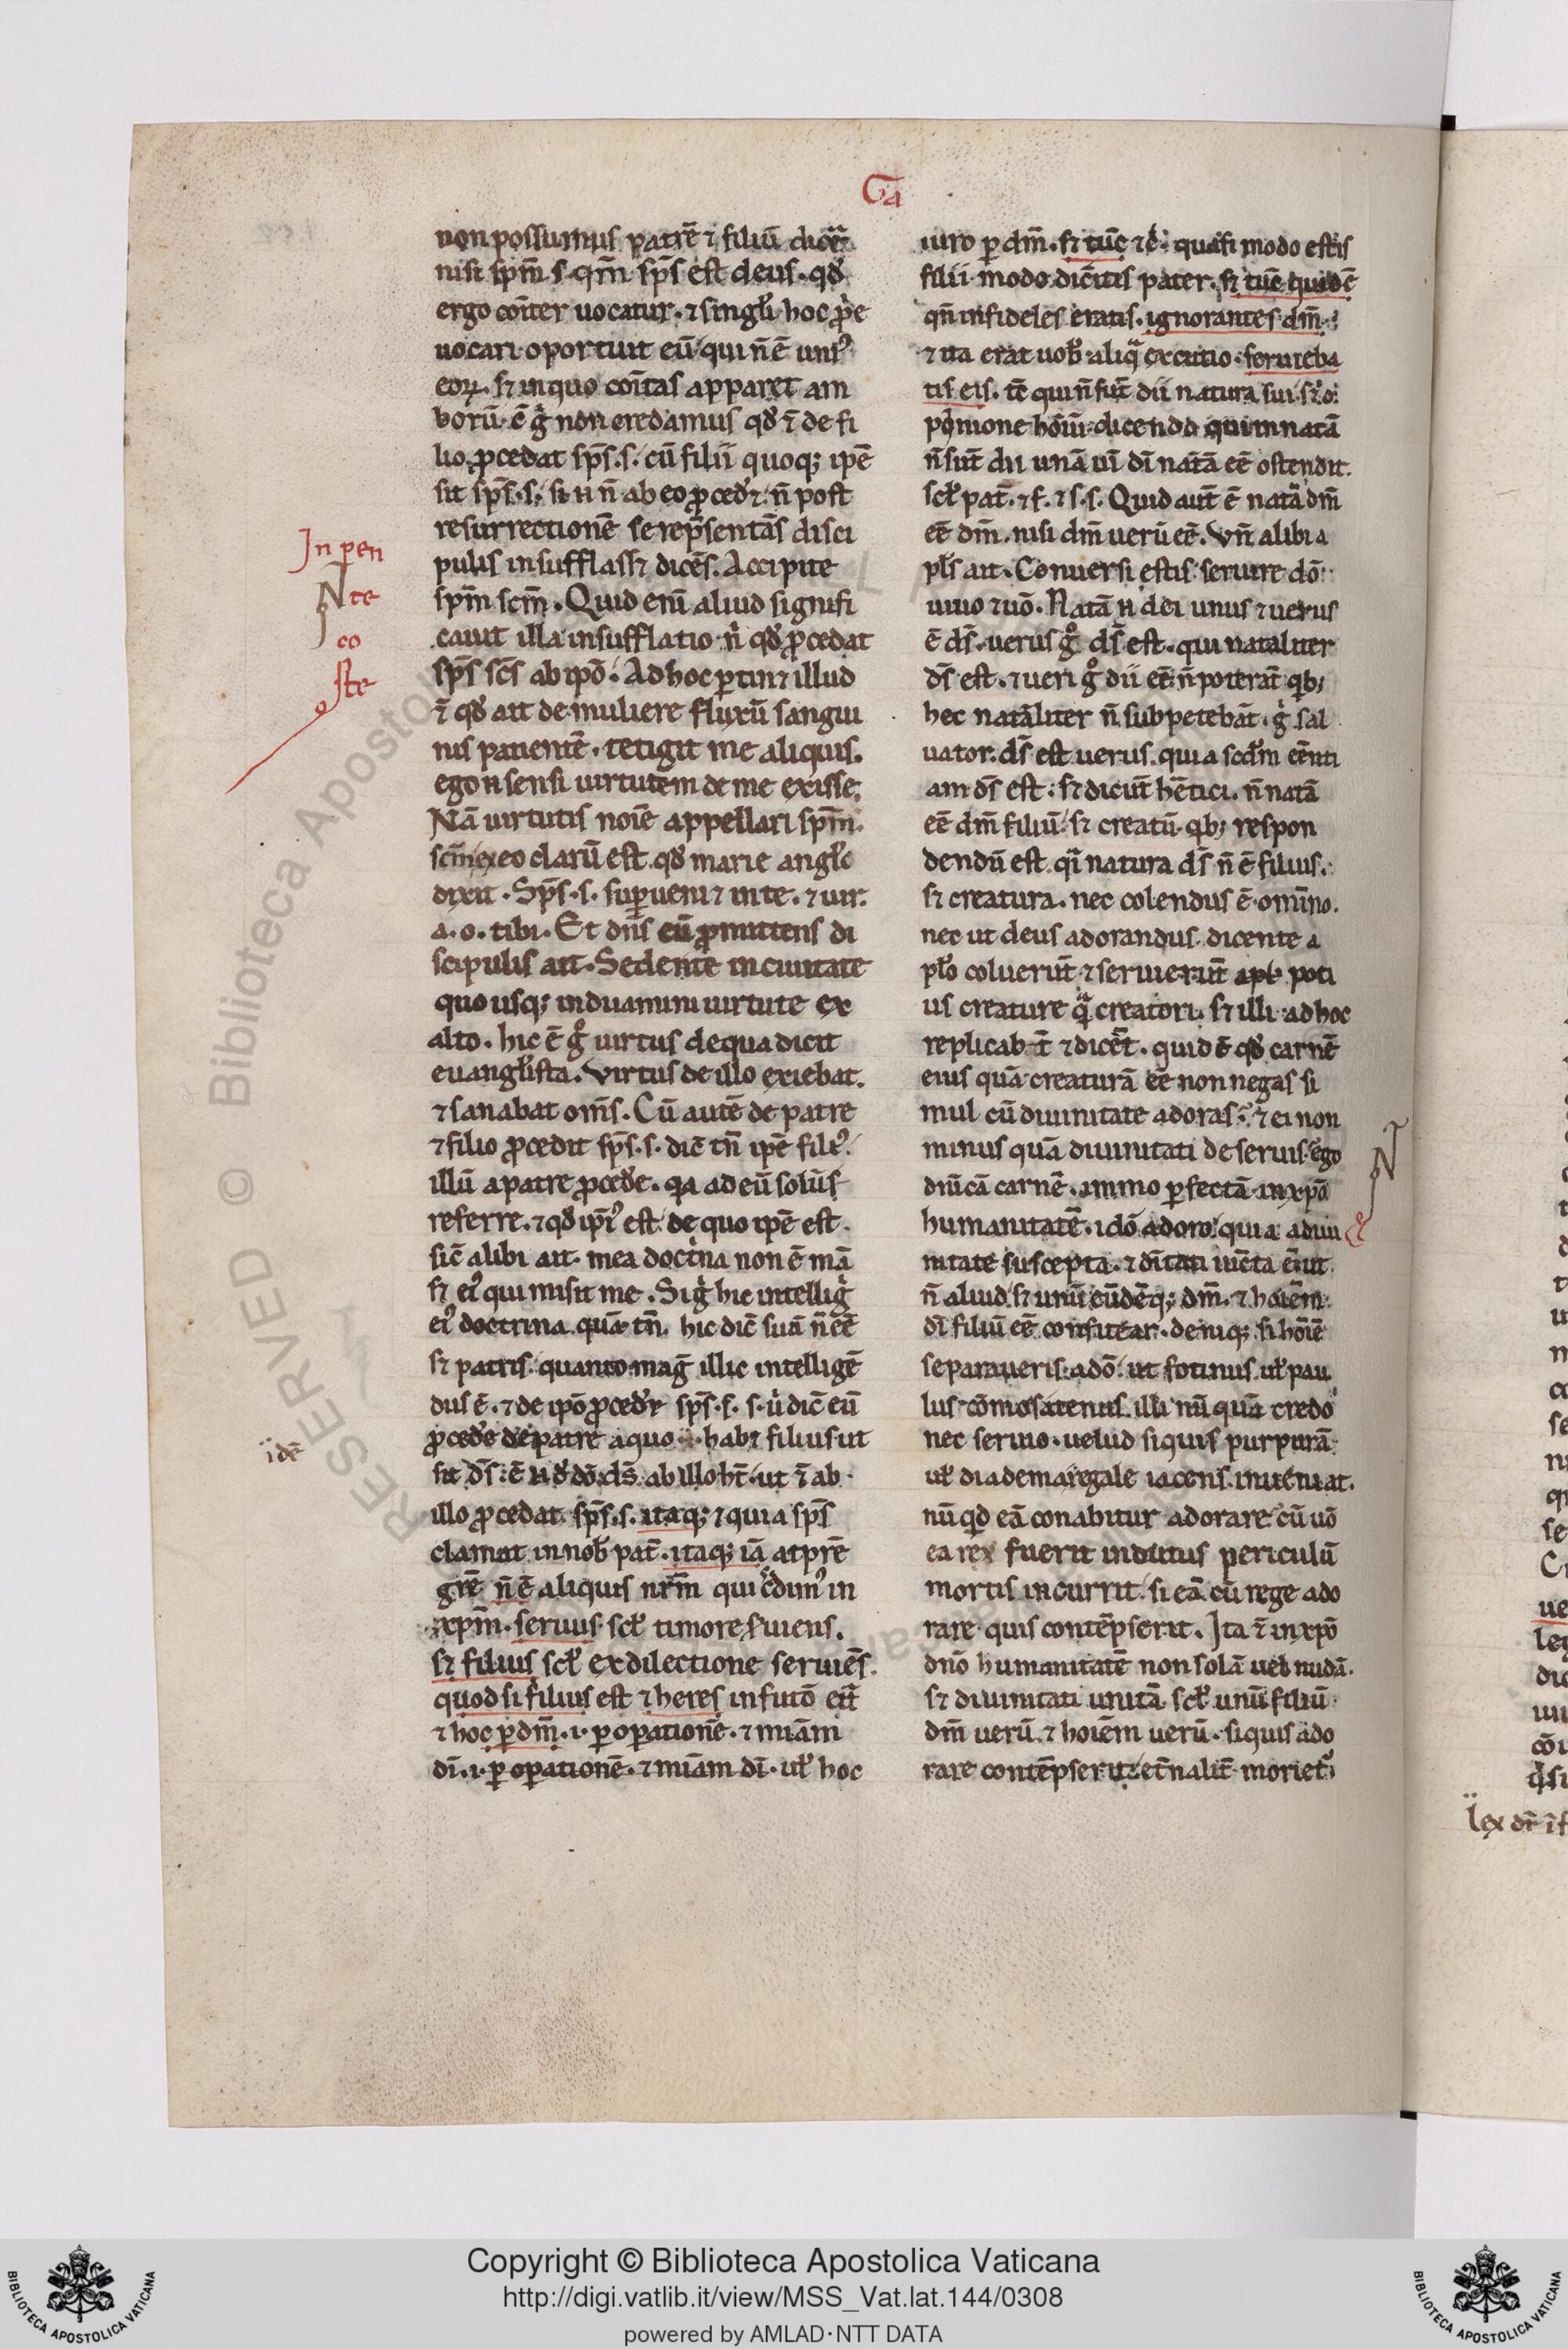 Ga
non possumus patrē ⁊ filiū dicē͛
nisi sp̄m .s. qm̄ sp̄s est deus. qđ
ergo cōiter uocatur. ⁊ singłi hoc pͥe
uocari oportuit eū qui n̄ ē uniꝰ
eoꝝ. sꝫ in quo cōitas apparet am
borū. ē gͥ non credamus qđ ⁊̄ de fi
lio ꝓcedat sp̄s .s. cū filii quoqꝫ ip̄e
sit sp̄s .s. si n̄ n̄ ab eo ꝓcedꝫ n̄ post
resurrectionē se rep̄sentās disci
pulis insufflassꝫ dicēs. Accipite
sp̄m sc̄m. Quid enī aliud signifi
cauit illa insufflatio nͥ qđ ꝓcedat
sp̄s sc̄s ab ip̄o. Ad hoc ꝑtinꝫ illud
⁊̄ qđ ait de muliere fluxū sangui
nis patientē. tetigit me aliquis.
ego n̄ sensi uirtutem de me exisse.
Nā uirtutis noīe appellari sp̄m
sc̄m ex eo clarū est qđ marie angłs
dixit. Sp̄s .s. supueniꝫ in te. ⁊ uir.
a. o. tibi. Et dn̄s eū ꝓmittens di
scipulis ait. Sedente in ciuitate
quo usqꝫ induamini uirtute ex
alto. hic ē gͦ uirtus de qua dicit
euangłista. Virtus de illo exiebat.
⁊ sanabat om̄s. Cū autē de patre
⁊ filio ꝓcedit sp̄s .s. dic̄ tn̄ ip̄e filiꝰ
illū a patre ꝓcedͤe. qͣ ad eū solūs
referre. ⁊ qđ ipīꝰ est de quo ip̄e est.
sic̄ alibi ait. mea doctͥna non ē mā
sꝫ eiꝰ qui misit me. Si gͥ hic intelligͥ
eiꝰ doctrina quā tn̄ hic dic̄ suā n̄ eē
sꝫ patris. quanto mag̅ illic intelligē
dus ē. ⁊ de ip̄o ꝓcedͤe sp̄s .s. s. ù dic̄ eū
ꝓcedͤe de patre a quo habꝫ filius ut
sit d̄s. ē n̄ d̄ dō. d̄s. ab illo ht̄. ut ⁊̄ ab
illo ꝓcedat sp̄s .s. itaqꝫ ⁊ quia sp̄s
clamat in nob̄ pat̄. itaqꝫ iā at pr̄e
grē n̄ ē aliquis nr̄m qui cͤdimꝰ in
xp̄m. seruus sc̄ł timore s̄uiens.
sꝫ filius sc̄ł ex dilectione seruiēs.
quod si filius est ⁊ heres in futō eīt
⁊ hoc ꝑ dm̄. i. ꝑ oꝑationē. ⁊ miām
dī. i. ꝑ oꝑationē. ⁊ miām dī. uł hoc
iuro ꝑ dm̄. sꝫ tūc ⁊c̄. quasi modo estis
filii modo dicitis pater. sꝫ tūc quidē
qn̄ infideles eratis. ignorantes dm̄.
⁊ ita erat uob̄ aliqͣ excutio. seruieba
tis eis. tē qui n̄ sūt dii natura sui sꝫ o.
pͥnione hōiū. dicendo qui in natā
n̄ sūt dii unā uī dī natā eē ostendit.
sc̄ł pat̄. ⁊ f. ⁊ s. s. Quid aut̄ ē natā dm̄
eē dm̄. nisi dm̄ uerū eē. Vn̄ alibi a
pl̄s ait. Conuersi estis seruire dō
uiuo ⁊ uō. Natā n̄ dei unus ⁊ uerus
ē d̄s. uerus gͦ d̄s est. qui natalīter
d̄s est. ⁊ ueri gͦ dii eē n̄ poterāt qͥbꝫ
hec natālīter n̄ subpetebāt. gͥ sal
uator. d̄s est uerus. quia sc̄dm eēnti
am d̄s est: sꝫ dicūt hētici. n̄ natā
eē dm̄ filiū. sꝫ creatū. qͥbꝫ respon
dendū est. qͥ natura d̄s n̄ ē filius.
sꝫ creatura. nec colendus ē omīno.
nec ut deus adorandus. dicente a
pło coluerūt ⁊ seruierūt poti
us creature qͣ creatori. sꝫ illi ad hoc
replicabt̄ ⁊ dicēt. quid ē qđ carnē
eius quā creaturā eē non negas si
mul cū diuinitate adoras. ⁊ ei non
minus quā diuinitati deseruis. ego
diuīcā carnē. immo ꝑfectā in xp̄o
humanitatē. idō adoro quia a diui
nitate suscepta. ⁊ dītati iūcta ē ut
n̄ aliud. sꝫ unū eūdēqꝫ dm̄. ⁊ hoīem.
dī filiū eē confitear. deniqꝫ si hōīē
separaueris a dō ut fotinus uł pau
lus cōmosatenus. illi nū quā credo
nec seruio. uelud si quis purpurā
uł diadema regale iacens inueniat.
nū qͥd eā conabitur adorare cū uō
ea rex fuerit indutus periculū
mortis incurrit. si eā cū rege ado
rare quis contēpserit. Ita ⁊̄ in xp̄o
dn̄o humanitatē non solā uel nudā.
sꝫ diuinitati unitā sc̄ł unū filiū
dm̄ uerū. ⁊ hoīem uerū. si quis ado
rare contēpserit et̄nalit̄ moriet᷑
In pen
te
co
ste
idē
N
lex dr̄
Copyright © Biblioteca Apostolica Vaticana
http://digi.vatlib.it/view/MSS_Vat.lat.144/0308
powered by AMLAD·NTT DATA